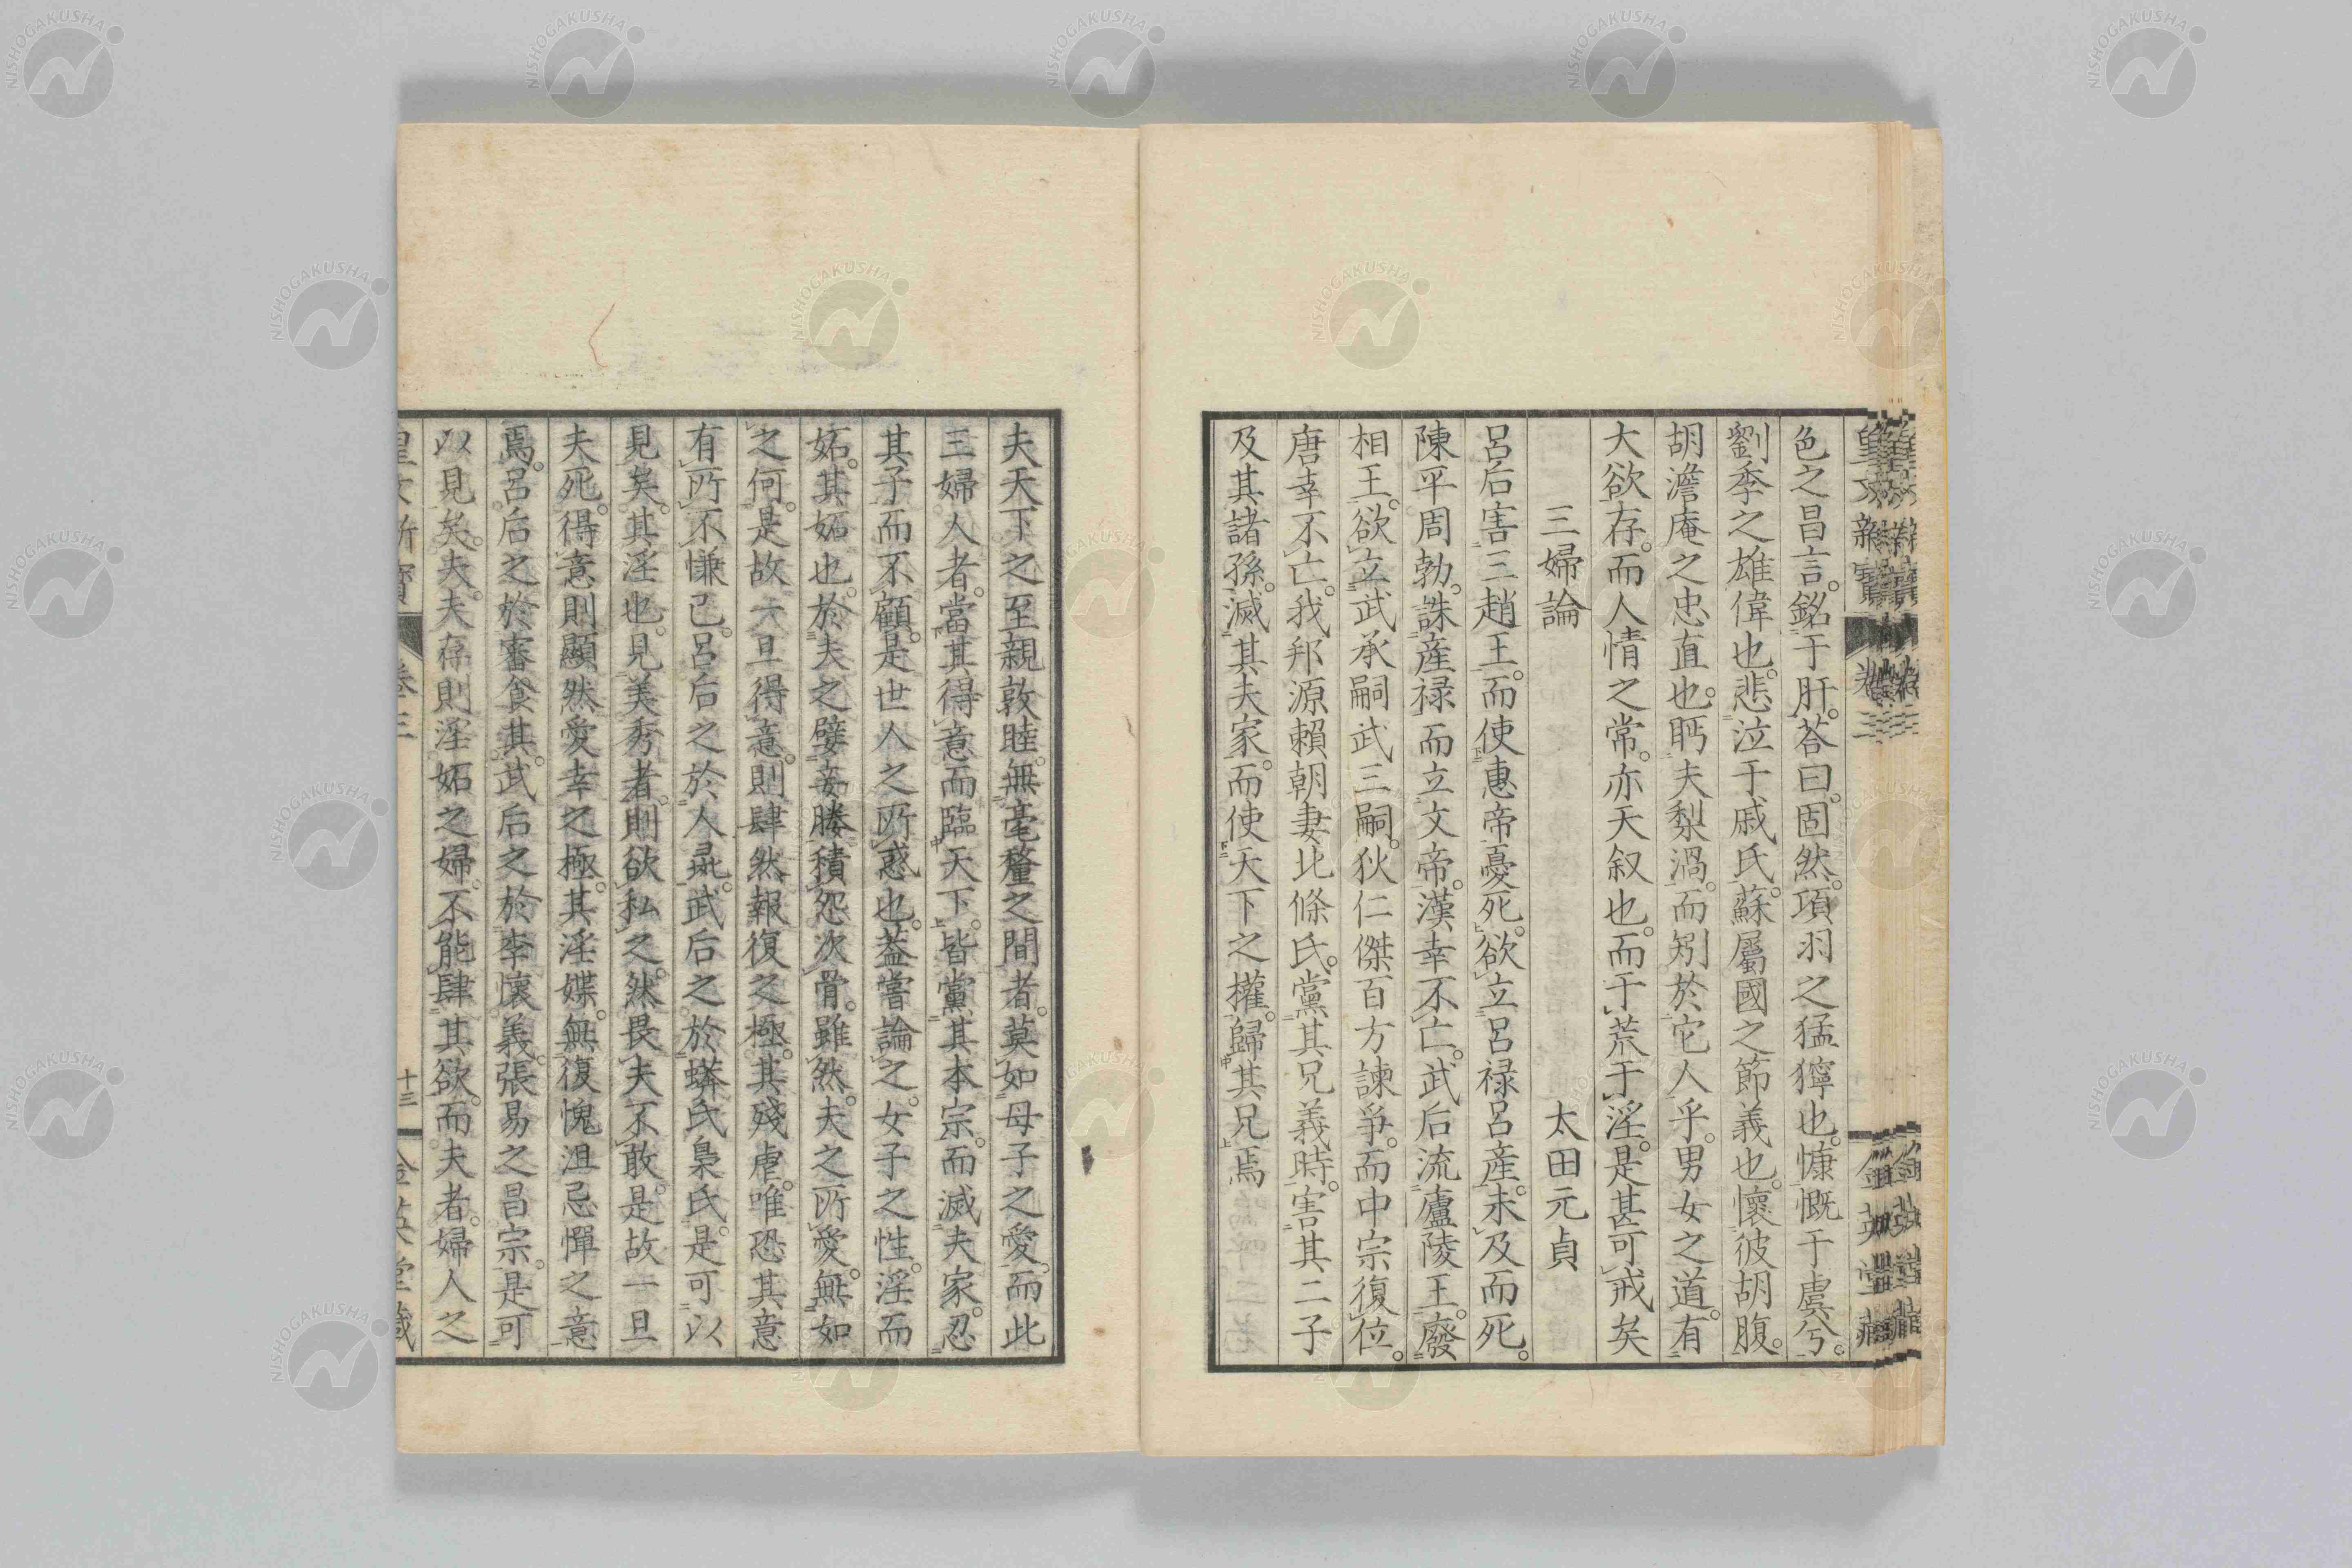 色之昌言。銘于肝。荅曰。固然。項羽之猛獰也。慷慨于虞兮。
劉季之雄偉也。悲泣于戚氏。蘇屬國之節義也。懷彼胡腹。
胡澹庵之忠直也。眄夫梨渦。而矧於它人乎。男女之道。有
大欲存。而人情之常。亦天叙也。而于荒于淫。是甚可戒矣
三婦論 太田元貞
呂后害三趙王。而使惠帝憂死。欲立呂禄呂産。未及而死。
陳平周勃。誅産禄而立文帝。漢幸不亡。武后流廬陵王。廢
相王。欲立武承嗣武三嗣。狄仁傑百方諫爭。而中宗復位。
唐幸不亡。我邦源頼朝妻北條氏。黨其兄義時。害其二子
及其諸孫。滅其夫家。而使天下之權。歸其兄焉
夫天下之至親敦睦。無毫釐之間者。莫如母子之愛。而此
三婦人者。當其得意而臨天下。皆黨其本宗。而滅夫家。忍
其子而不顧。是世人之所惑也。蓋嘗論之。女子之性。淫而
妬。其妬也。於夫之嬖妾媵。積怨次骨。雖然。夫之所愛。無如
之何。是故一旦得意。則肆然報復之極。其殘虐。唯恐其意
有所不慊已。呂后之於人彘。武后之於蟒氏梟氏。是可以
見矣。其淫也。見美秀者。則欲私之。然畏夫不敢。是故一旦
夫死。得意則顯然愛幸之極。其淫媟。無復愧沮忌憚之意
焉。呂后之於審食其。武后之於李懷義。張易之昌宗。是可
以見矣。夫夫存則淫妬之婦。不能肆其欲。而夫者。婦人之
卷三
十三
NISHOGAKUSHA